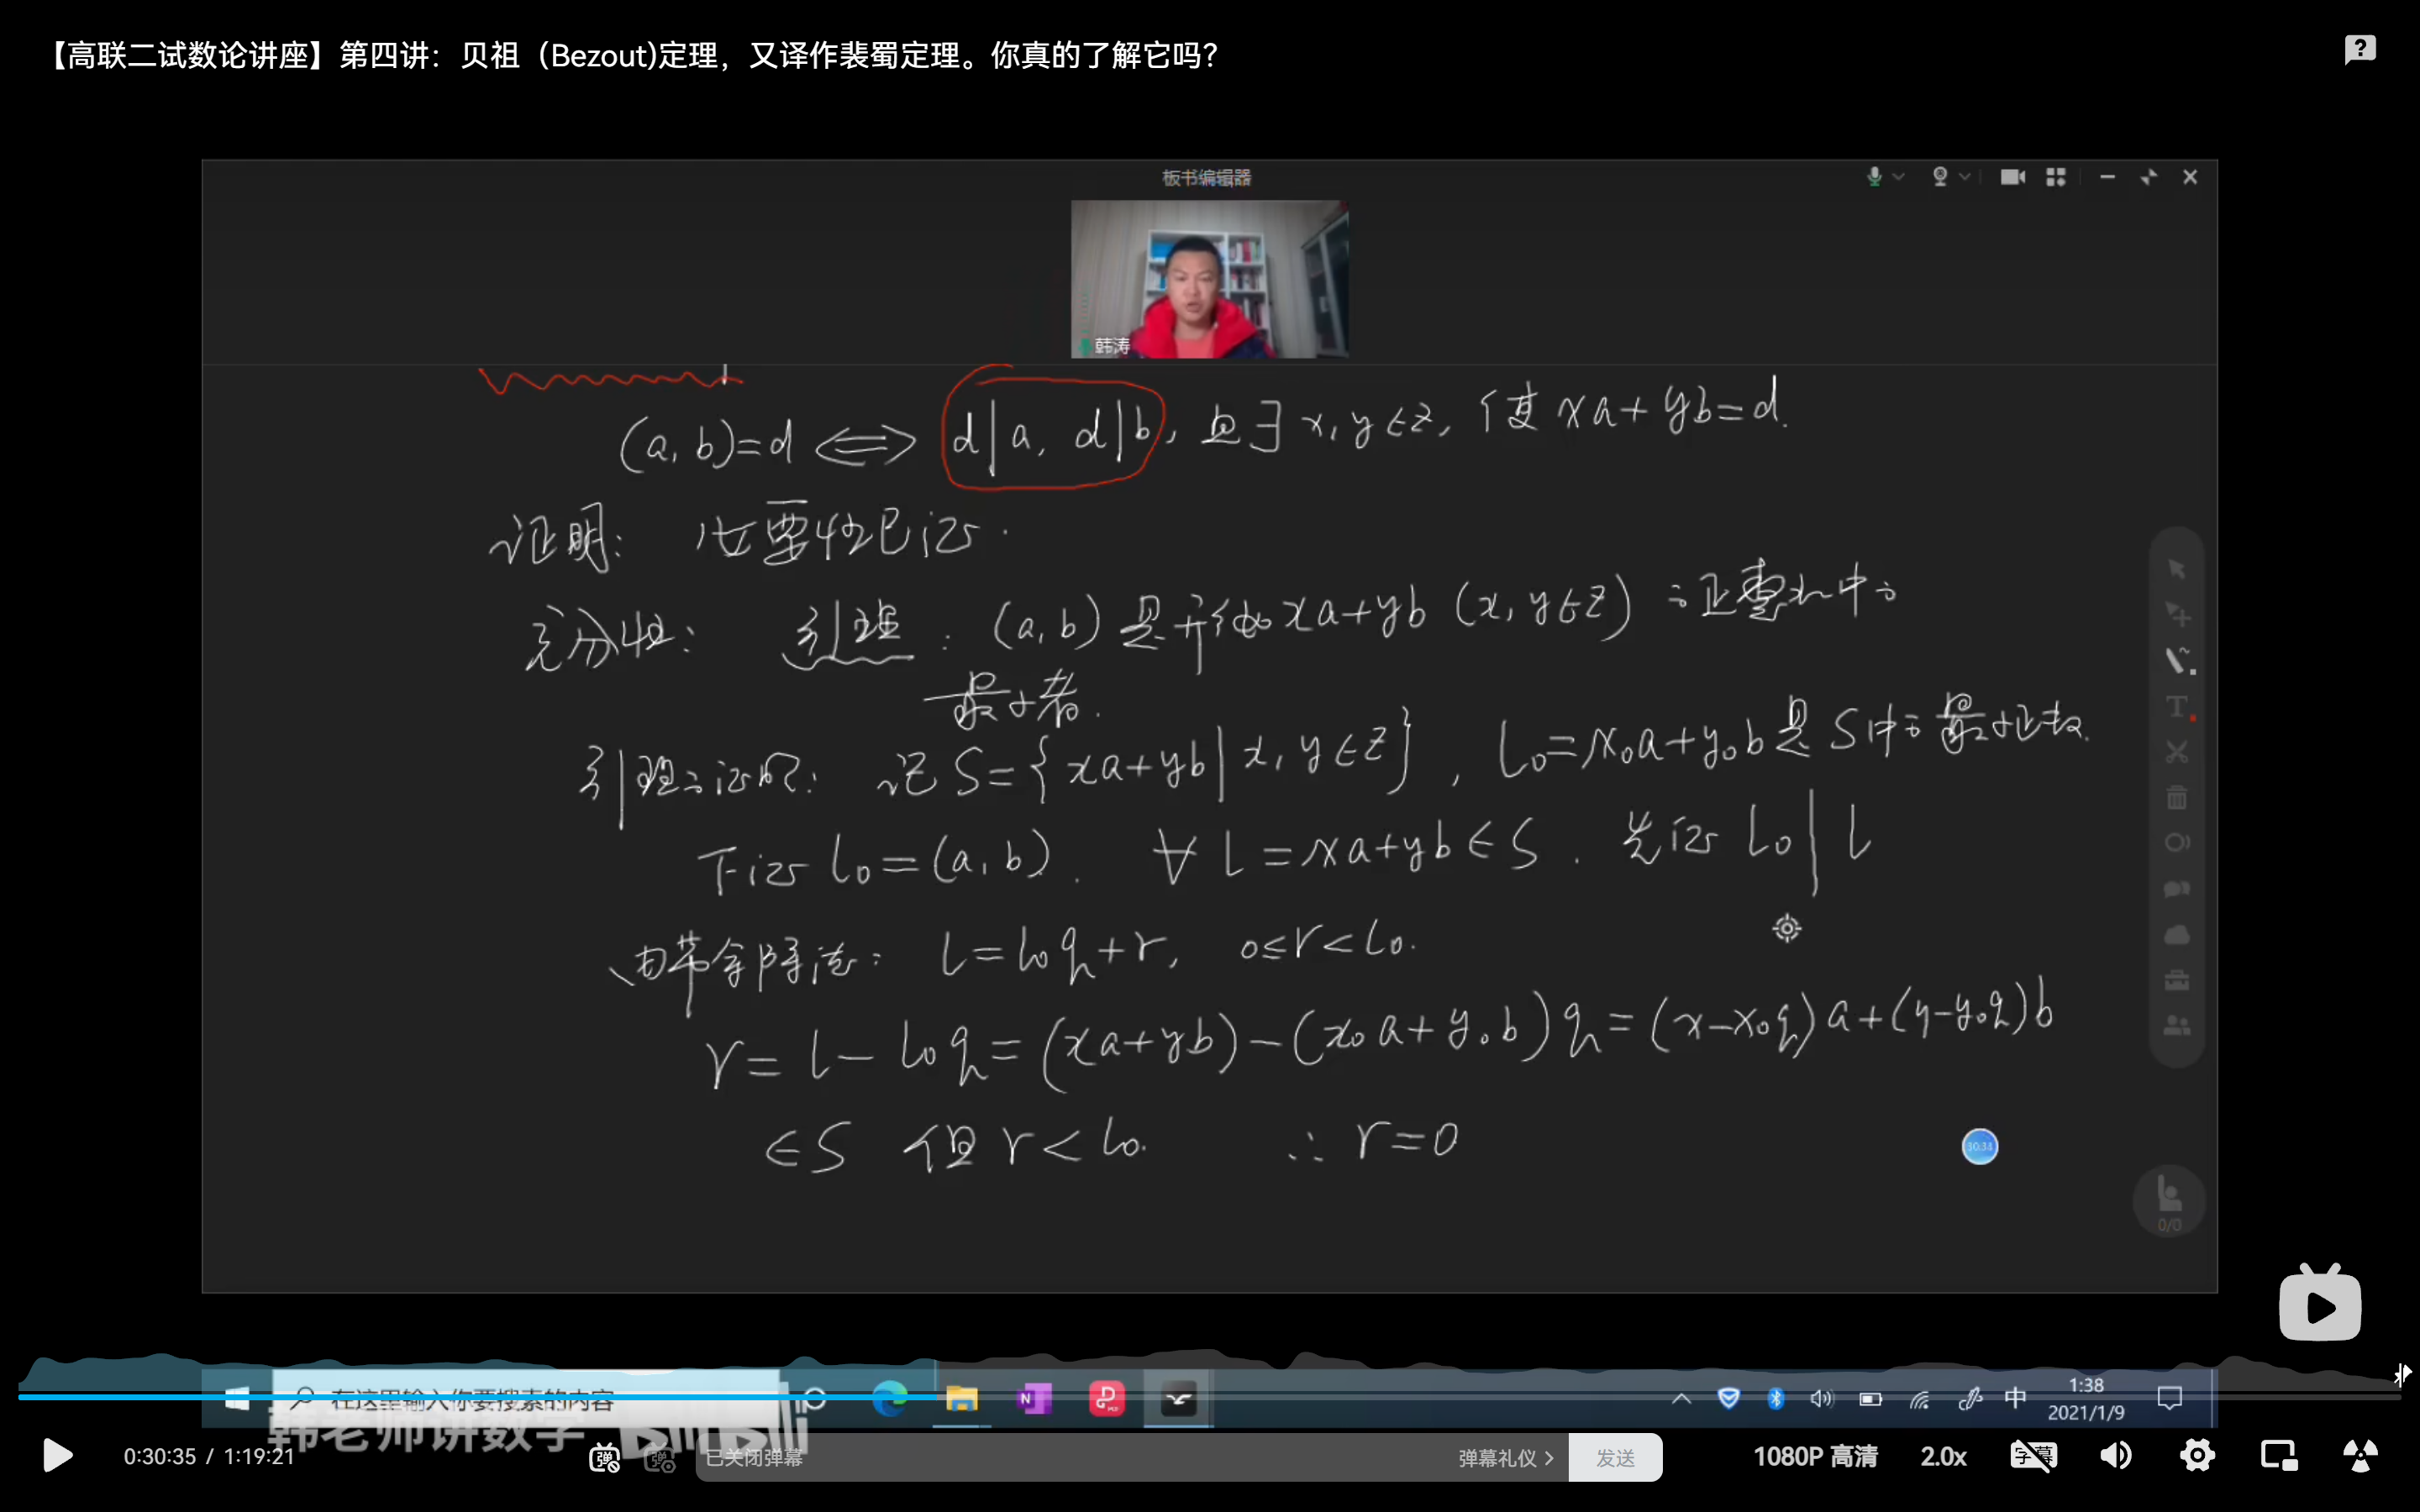 【高联二试数论讲座】第四讲：贝祖（Bezout)定理，又译作裴蜀定理。你真的了解它吗？
板书编辑器
韩涛
(a, b)=d ⟺ d|a, d|b, 且∃x, y∈Z, 使xa+yb=d.
证明: 必要性已证.
充分性: 引理: (a, b)是形如xa+yb (x, y∈Z) 之正整数中之
最小者.
引理之证明: 记S={xa+yb|x, y∈Z}, l₀=x₀a+y₀b是S中之最小正数.
下证l₀=(a, b). ∀l=xa+yb∈S. 先证l₀|l
由带余除法: l=l₀q+r, 0≤r<l₀.
r=l-l₀q=(xa+yb)-(x₀a+y₀b)q=(x-x₀q)a+(y-y₀q)b
∈S 但r<l₀. ∴r=0
30:34
0/0
在这里输入你要搜索的内容
中
1:38
2021/1/9
韩老师讲数学 bilibili
0:30:35 / 1:19:21
弹
已关闭弹幕
弹幕礼仪 >
发送
1080P 高清
2.0x
字幕